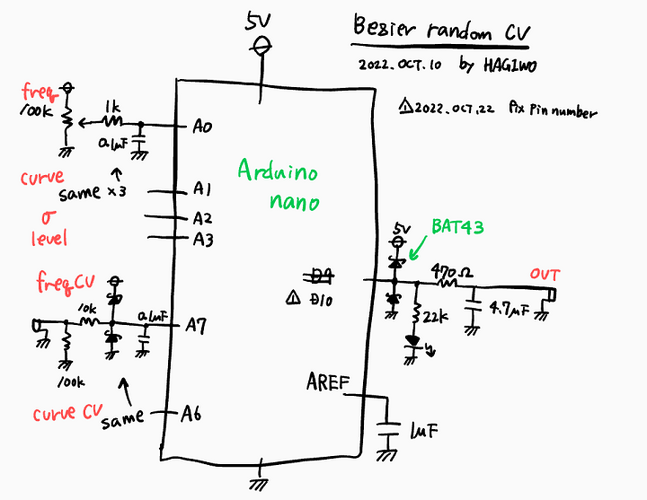 5V
Bezier random CV
2022.OCT.10 by HAGIWO
⚠2022.OCT.22 fix pin number
freq
100k
1k
A0
0.1μF
curve
same x3
A1
σ
A2
level
A3
Arduino
nano
5V
BAT43
470Ω
OUT
D9
⚠ D10
4.7μF
22k
freq CV
10k
0.1μF
A7
100k
AREF
curve CV
same
A6
1μF